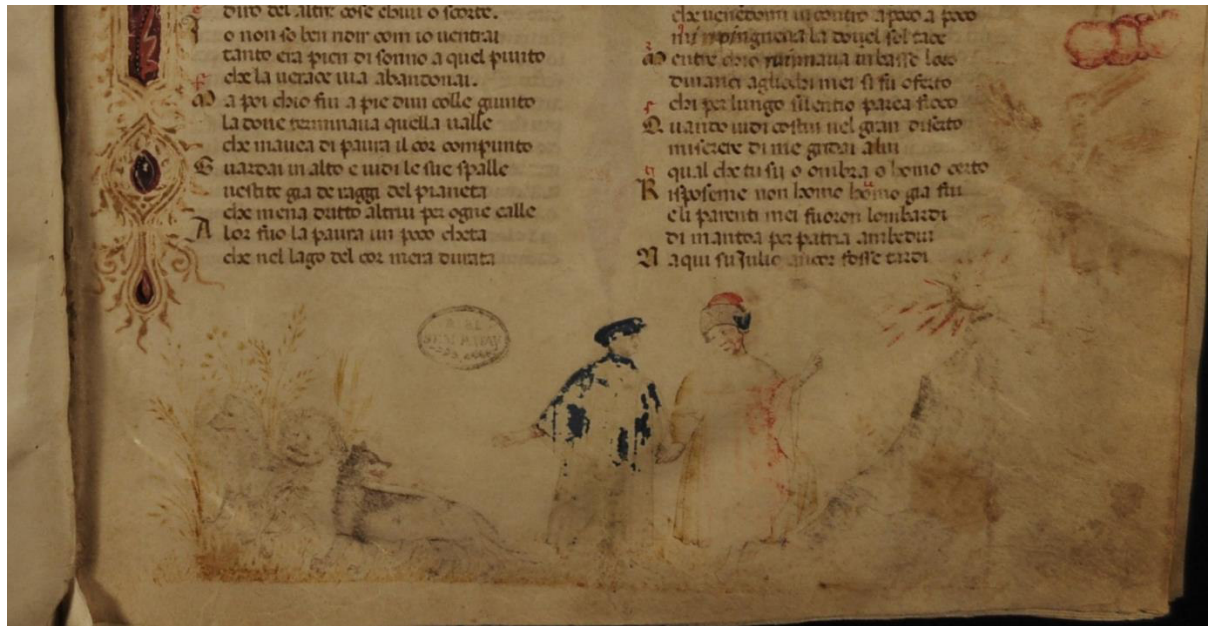 diro del altre cose chiui o scorte.
I o non so ben ridir com io uentrai
tanto era pien di sonno a quel punto
che la uerace uia abandonai.
M a poi chio fui a pie dun colle giunto
la doue terminaua quella ualle
che mauea di paura il cor compunto
G uardai in alto e uidi le sue spalle
uestite gia de raggi del pianeta
che mena dritto altrui per ogne calle
A lor fuo la paura un poco cheta
che nel lago del cor mera durata
che uenendomi incontro a poco a poco
mi ripingneua la douel sol tace
M entre chio ruinaua in basso loco
dinanci agliochi mei si fu oferto
chi per lungo silentio parea fioco
Q uando uidi costui nel gran diserto
miserere di me gridai a lui
qual che tu sii o ombra o homo certo
R isposeme non homo homo gia fui
e li parenti mei fuoron lombardi
di mantoa per patria ambedui
N aqui su Julio ancor fosse tardi
SEM. PATAV